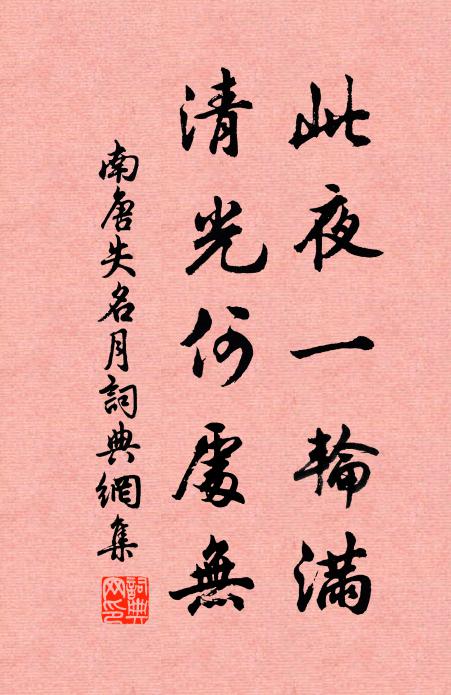 此夜一輪滿
清光何處無
南唐失名月詞典網集
詞典網印